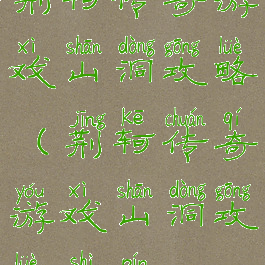 荆轲传奇游
xì shān dòng gōng lüè
戏山洞攻略
jīng kē chuán qí
(荆轲传奇
yóu xì shān dòng gōng
游戏山洞攻
lüè shì pín